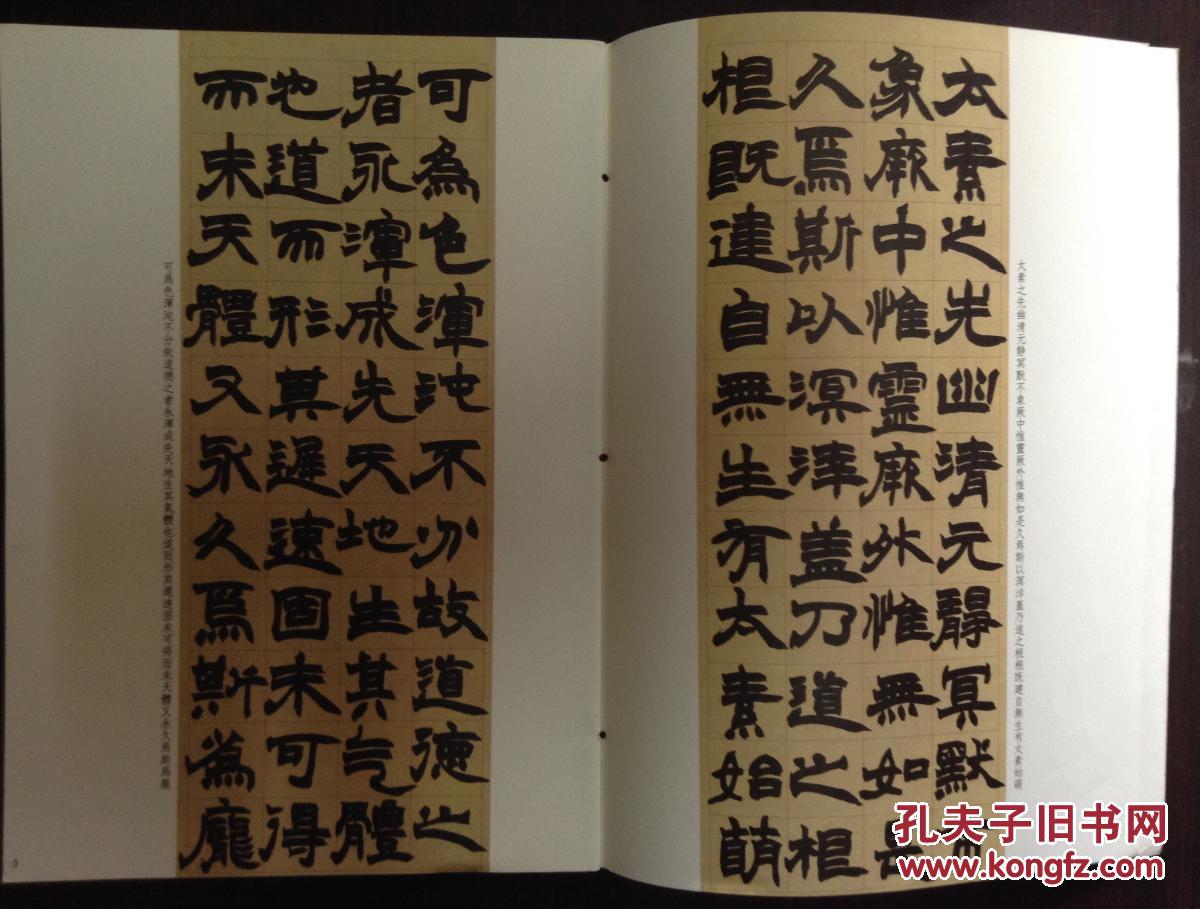 太素之先幽清元靜冥默不象厥中惟靈厥外惟無如是久焉斯以溟涬蓋乃道之根根既建自無生有太素始萌
太素之先幽清元靜冥默不
象厥中惟靈厥外惟無如是
久焉斯以溟涬盖乃道之根
根既建自無生有太素始萌
可為色渾沌不分故道德之
者永渾成先天地生其气體
也道而形其遲速固未可得
而未天體又永久焉斯為龐
可爲色渾沌不分故道德之者永渾成先天地生其氣體也道而形其遲速固未可得而未天體又永久焉斯爲龐
3
孔夫子旧书网
www.kongfz.com